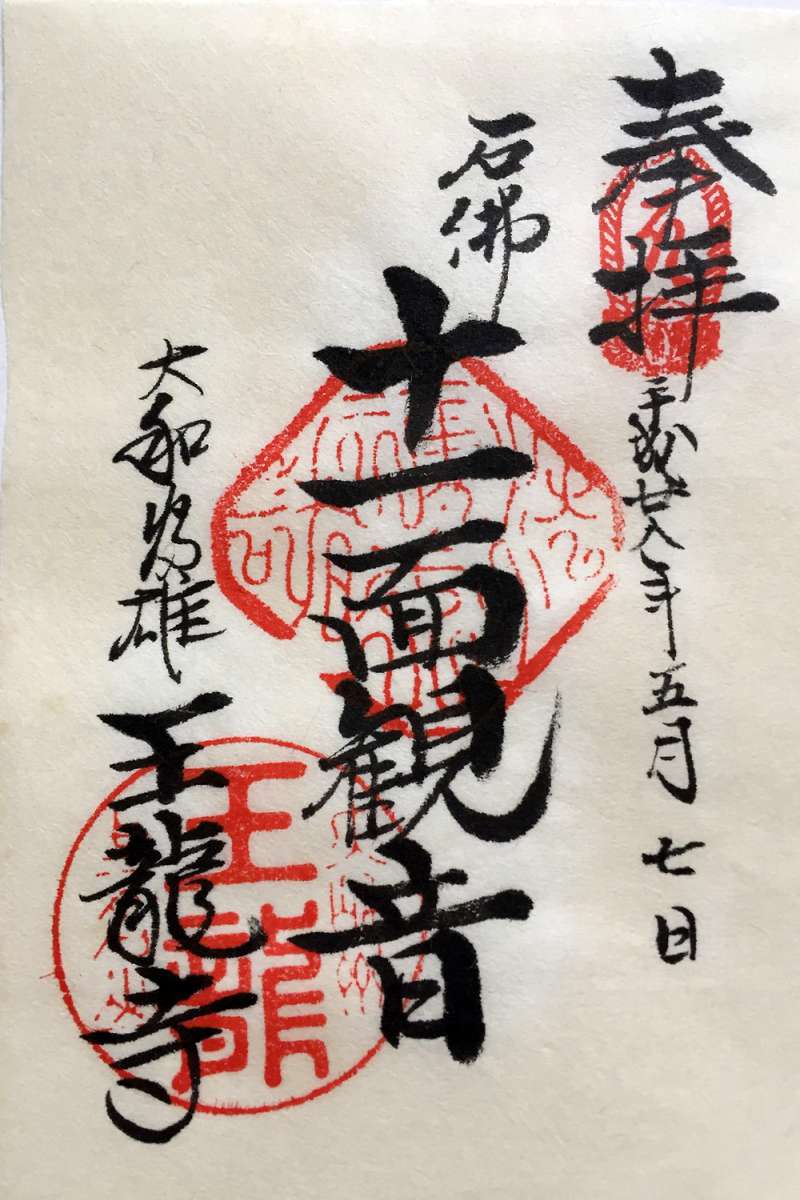 奉拝
平成廿八年五月七日
石佛
十一面観音
大和
雄
王龍寺
王龍